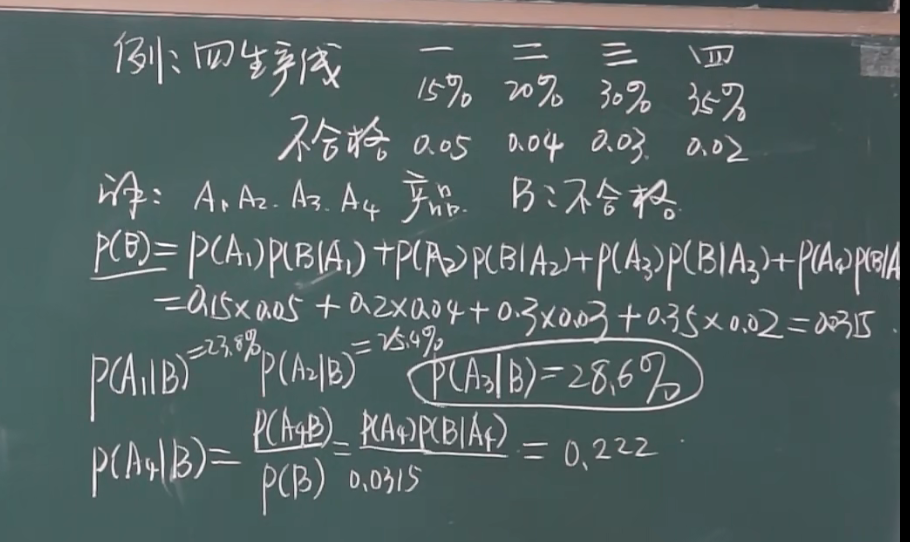 例: 四生产线 一 二 三 四
15% 20% 30% 35%
不合格 0.05 0.04 0.03 0.02
译: A₁ A₂. A₃. A₄ 产品. B: 不合格.
P(B)=P(A₁)P(B|A₁)+P(A₂)P(B|A₂)+P(A₃)P(B|A₃)+P(A₄)P(B|A
=0.15×0.05+0.2×0.04+0.3×0.03+0.35×0.02=0.0315.
P(A₁|B)=23.8% P(A₂|B)=25.4% P(A₃|B)=28.6%
P(A₄|B)=P(A₄B)/P(B)=P(A₄)P(B|A₄)/0.0315=0.222